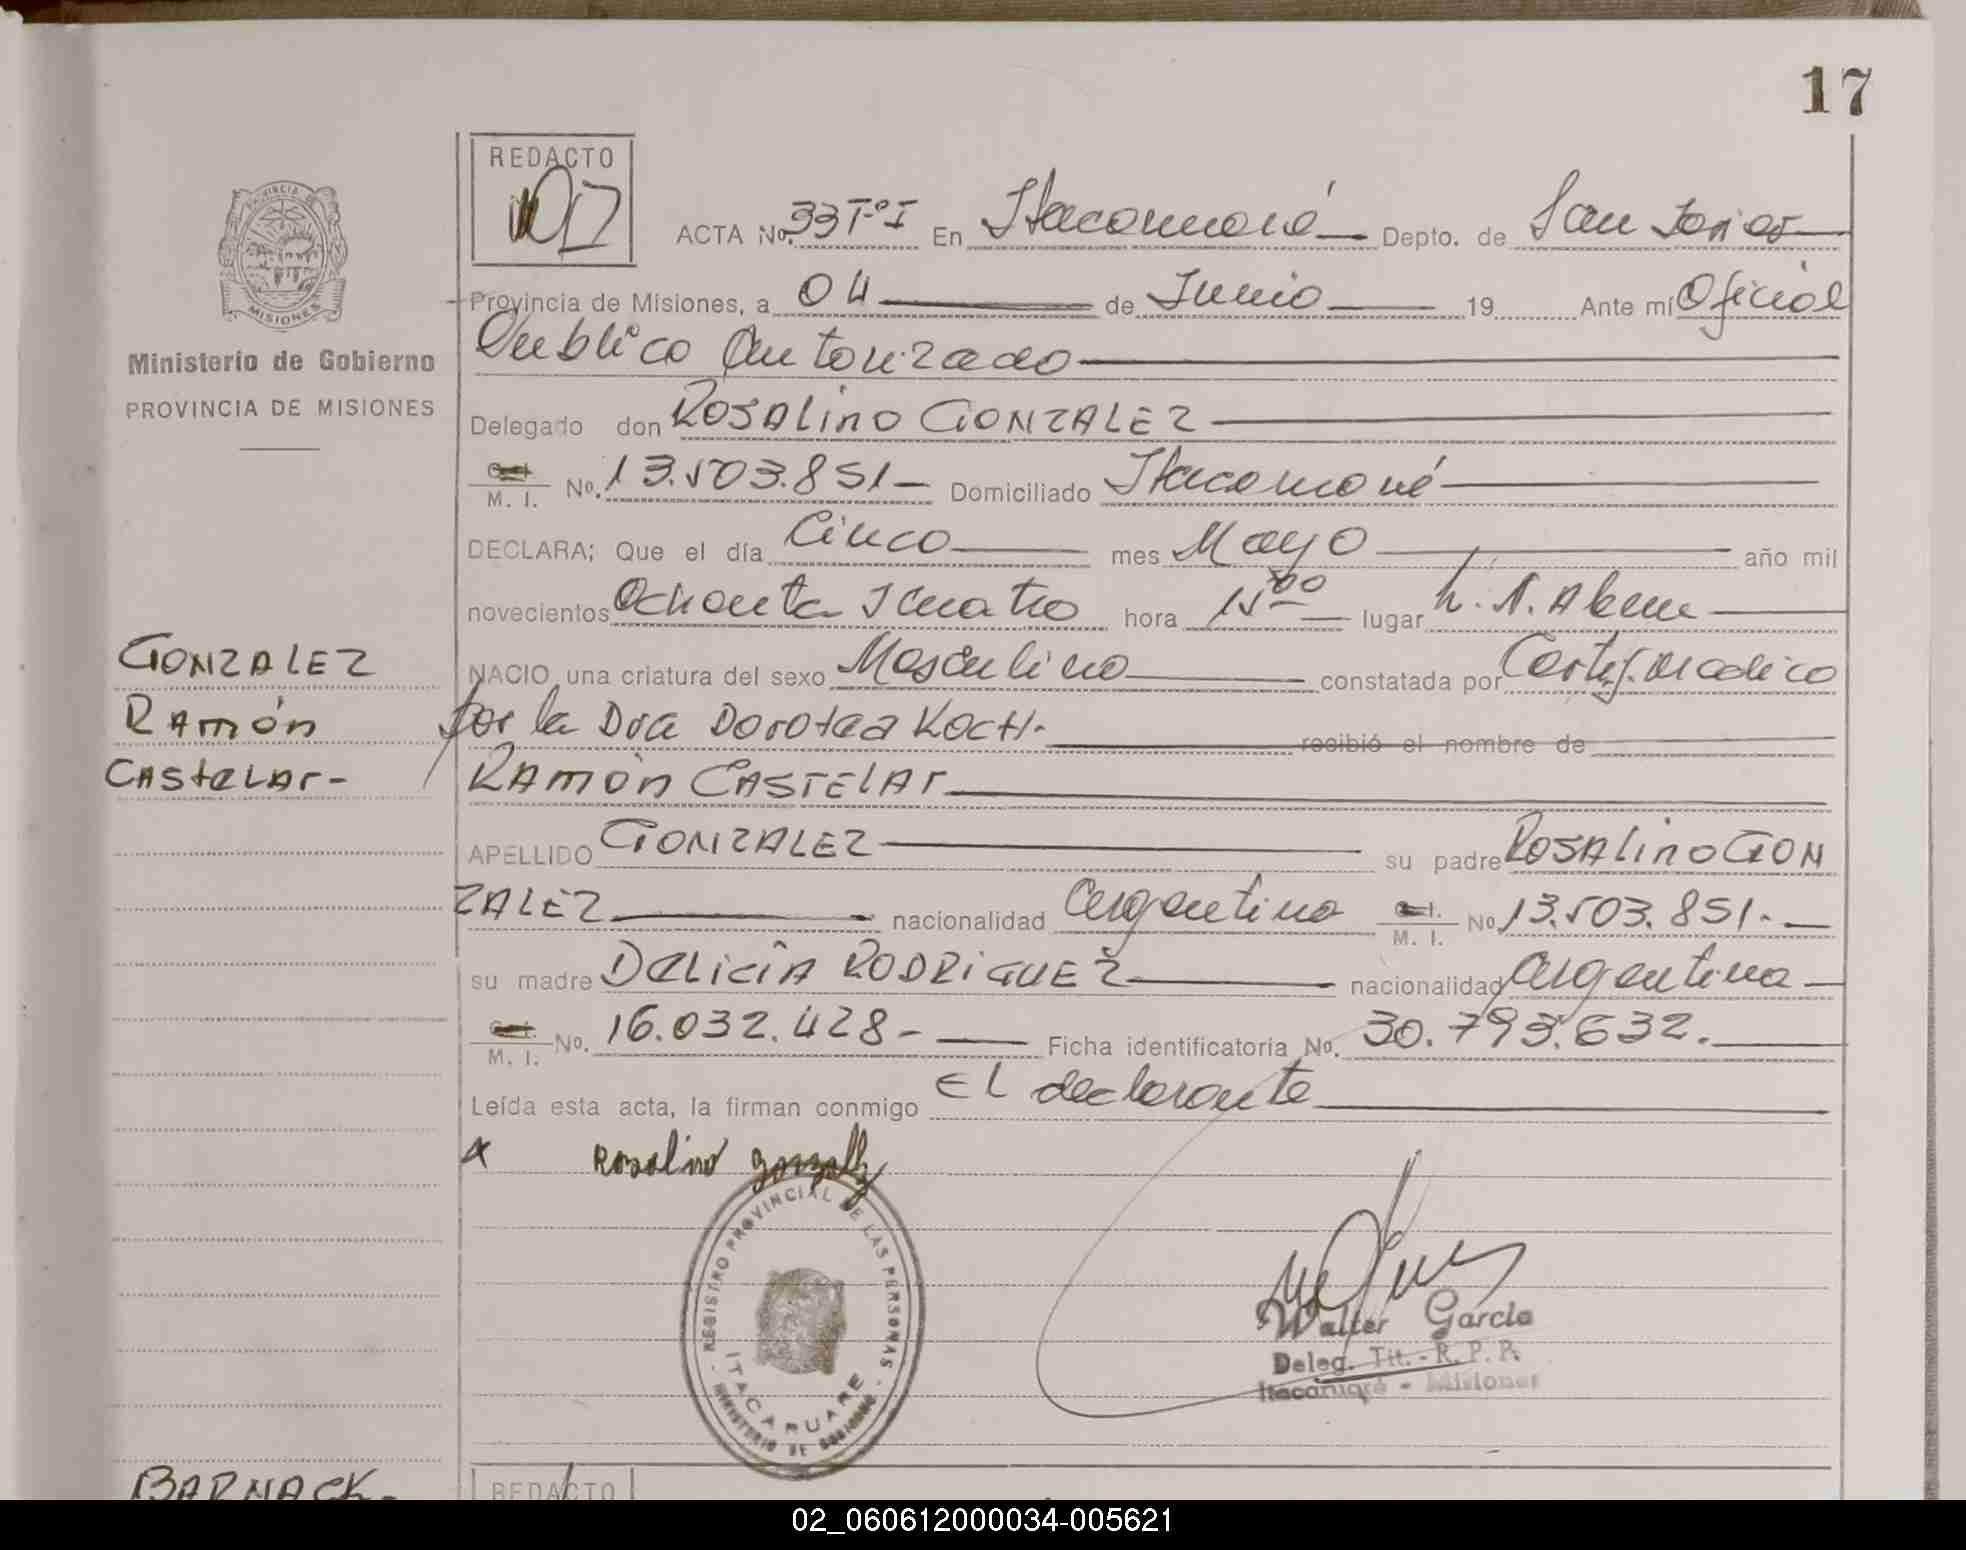 17
PROVINCIA
MISIONES
Ministerio de Gobierno
PROVINCIA DE MISIONES
REDACTO
ACTA No. 33 Tº I En Itacaruaré Depto. de San Javier
Provincia de Misiones, a 04 de Junio 19 Ante mí Oficial
Publico Autorizado
Delegado don ROSALINO GONZALEZ
M. I. No. 13.503.851- Domiciliado Itacaruaré
DECLARA; Que el día Cinco mes Mayo año mil
novecientos Ochenta y cuatro hora 15 00 lugar L. N. Alem
NACIO una criatura del sexo Masculino constatada por Certif. Medico
por la Dra Dorotea KOCH. recibió el nombre de
RAMÓN CASTELAR
APELLIDO GONZALEZ su padre ROSALINO GON
ZALEZ nacionalidad argentino M. I. No. 13.503.851.-
su madre DELICIA RODRIGUEZ nacionalidad argentina
M. I. No. 16.032.428- Ficha identificatoria No. 30.793.632.
Leída esta acta, la firman conmigo El declarante
GONZALEZ
RAMÓN
CASTELAR-
Rosalino Gonzalez
REGISTRO PROVINCIAL DE LAS PERSONAS
ITACARUARE
MINISTERIO DE GOBIERNO
Walter García
Deleg. Tit. - R. P. P.
Itacaruaré - Misiones
BARNACK-
REDACTO
02_060612000034-005621